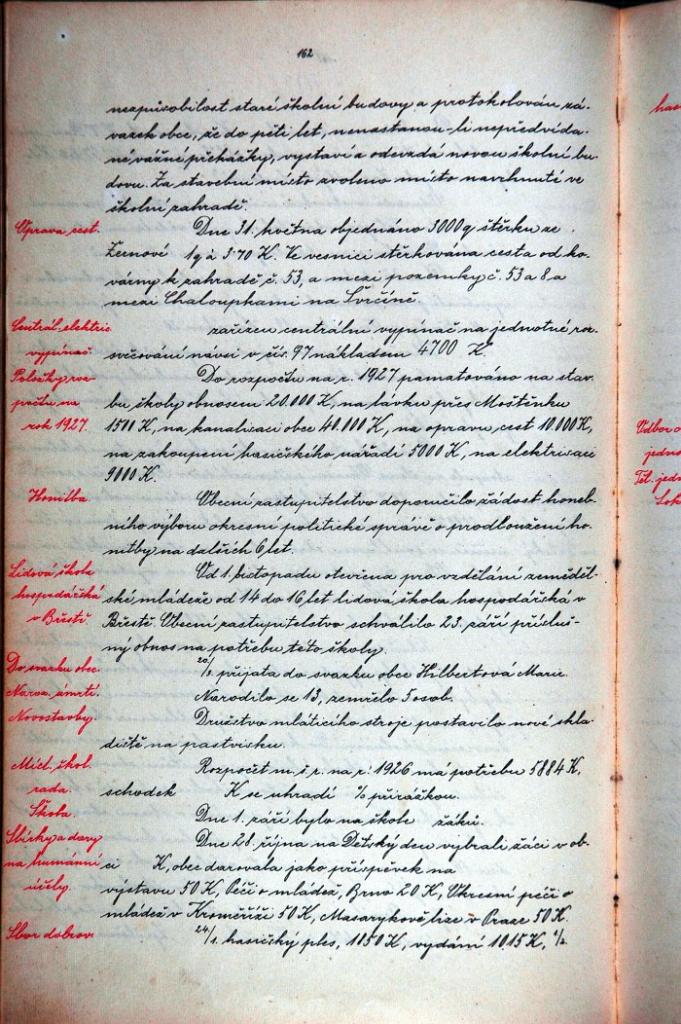 162
nezpůsobilost staré školní budovy a protokolován zá-
vazek obce, že do pěti let, nenastanou-li nepředvída-
né vážné překážky, vystaví a odevzdá novou školní bu-
dovu. Za stavební místo zvoleno místo navrhnuté ve
školní zahradě.
Úprava cest. Dne 31. května objednáno 3000 q štěrku ze
Žernové 1 q à 3·70 K. Ve vesnici štěrkována cesta od ko-
várny k zahradě č. 53, a mezi pozemky č. 53 a 8 a
mezi Chaloupkami na Svrčině.
Centrál. elektric. zařízen centrální vypínač na jednotné roz-
vypínač. svěcování návsi v čís. 97 nákladem 4700 K.
Položky roz- Do rozpočtu na r. 1927 pamatováno na stav-
počtu na bu školy obnosem 20.000 K, na lávku přes Moštěnku
rok 1927. 1500 K, na kanalisaci obce 40.000 K, na opravu cest 10.000 K,
na zakoupení hasičského nářadí 5000 K, na elektrisaci
9000 K.
Honitba. Obecní zastupitelstvo doporučilo žádost honeb-
ního výboru okresní politické správě o prodloužení ho-
nitby na dalších 6 let.
Lidová škola Od 1. listopadu otevřena pro vzdělání zeměděl-
hospodářská ské mládeže od 14 do 16 let lidová škola hospodářská v
v Břestě. Břestě. Obecní zastupitelstvo schválilo 23. září přísluš-
ný obnos na potřebu této školy.
Do svazku obec. 20/8. přijata do svazku obce Hilbertová Marie.
Naroz. úmrtí. Narodilo se 13, zemřelo 5 osob.
Novostavby. Družstvo mláticího stroje postavilo nové skla-
diště na pastvisku.
Míst. škol. Rozpočet m. š. r. na r. 1926 má potřebu 5884 K,
rada. schodek K se uhradí % přirážkou.
Škola. Dne 1. září bylo na škole žáků.
Sbírky a dary Dne 28. října na Dětský den vybrali žáci v ob-
na humánní ci K, obec darovala jako příspěvek na
účely. výstavu 50 K, Péči o mládež, Brno 20 K, Okresní péči o
mládež v Kroměříži 50 K, Masarykově lize v Praze 50 K.
Sbor dobrov. 24/1. hasičský ples, 1050 K, vydání 1015 K,
has
Odbor
jedno
Těl. jedn
Sok